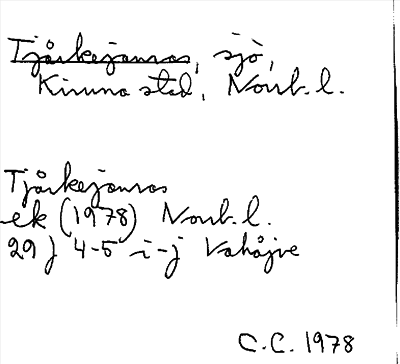 Tjårkejauras, sjö,
Kiruna stad, Norrb. l.
Tjårkejauras
ek (1978) Norrb. l.
29 J 4-5 i-j Vahåjve
C.C. 1978